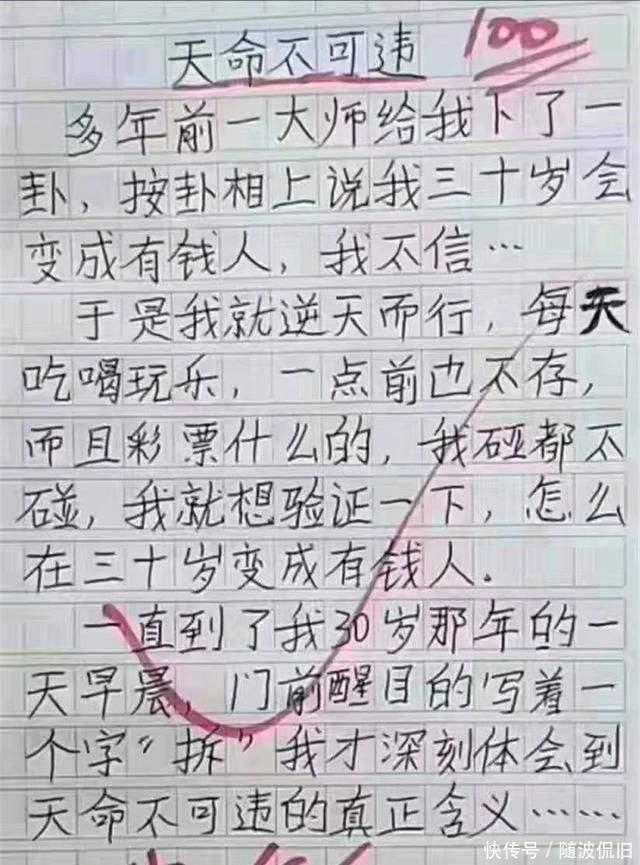 天命不可违 100
多年前一大师给我下了一
卦，按卦相上说我三十岁会
变成有钱人，我不信…
于是我就逆天而行，每天
吃喝玩乐，一点前也不存，
而且彩票什么的，我碰都不
碰，我就想验证一下，怎么
在三十岁变成有钱人.
一直到了我30岁那年的一
天早晨，门前醒目的写着一
个字“拆”我才深刻体会到
天命不可违的真正含义……
快传号 / 随波侃旧